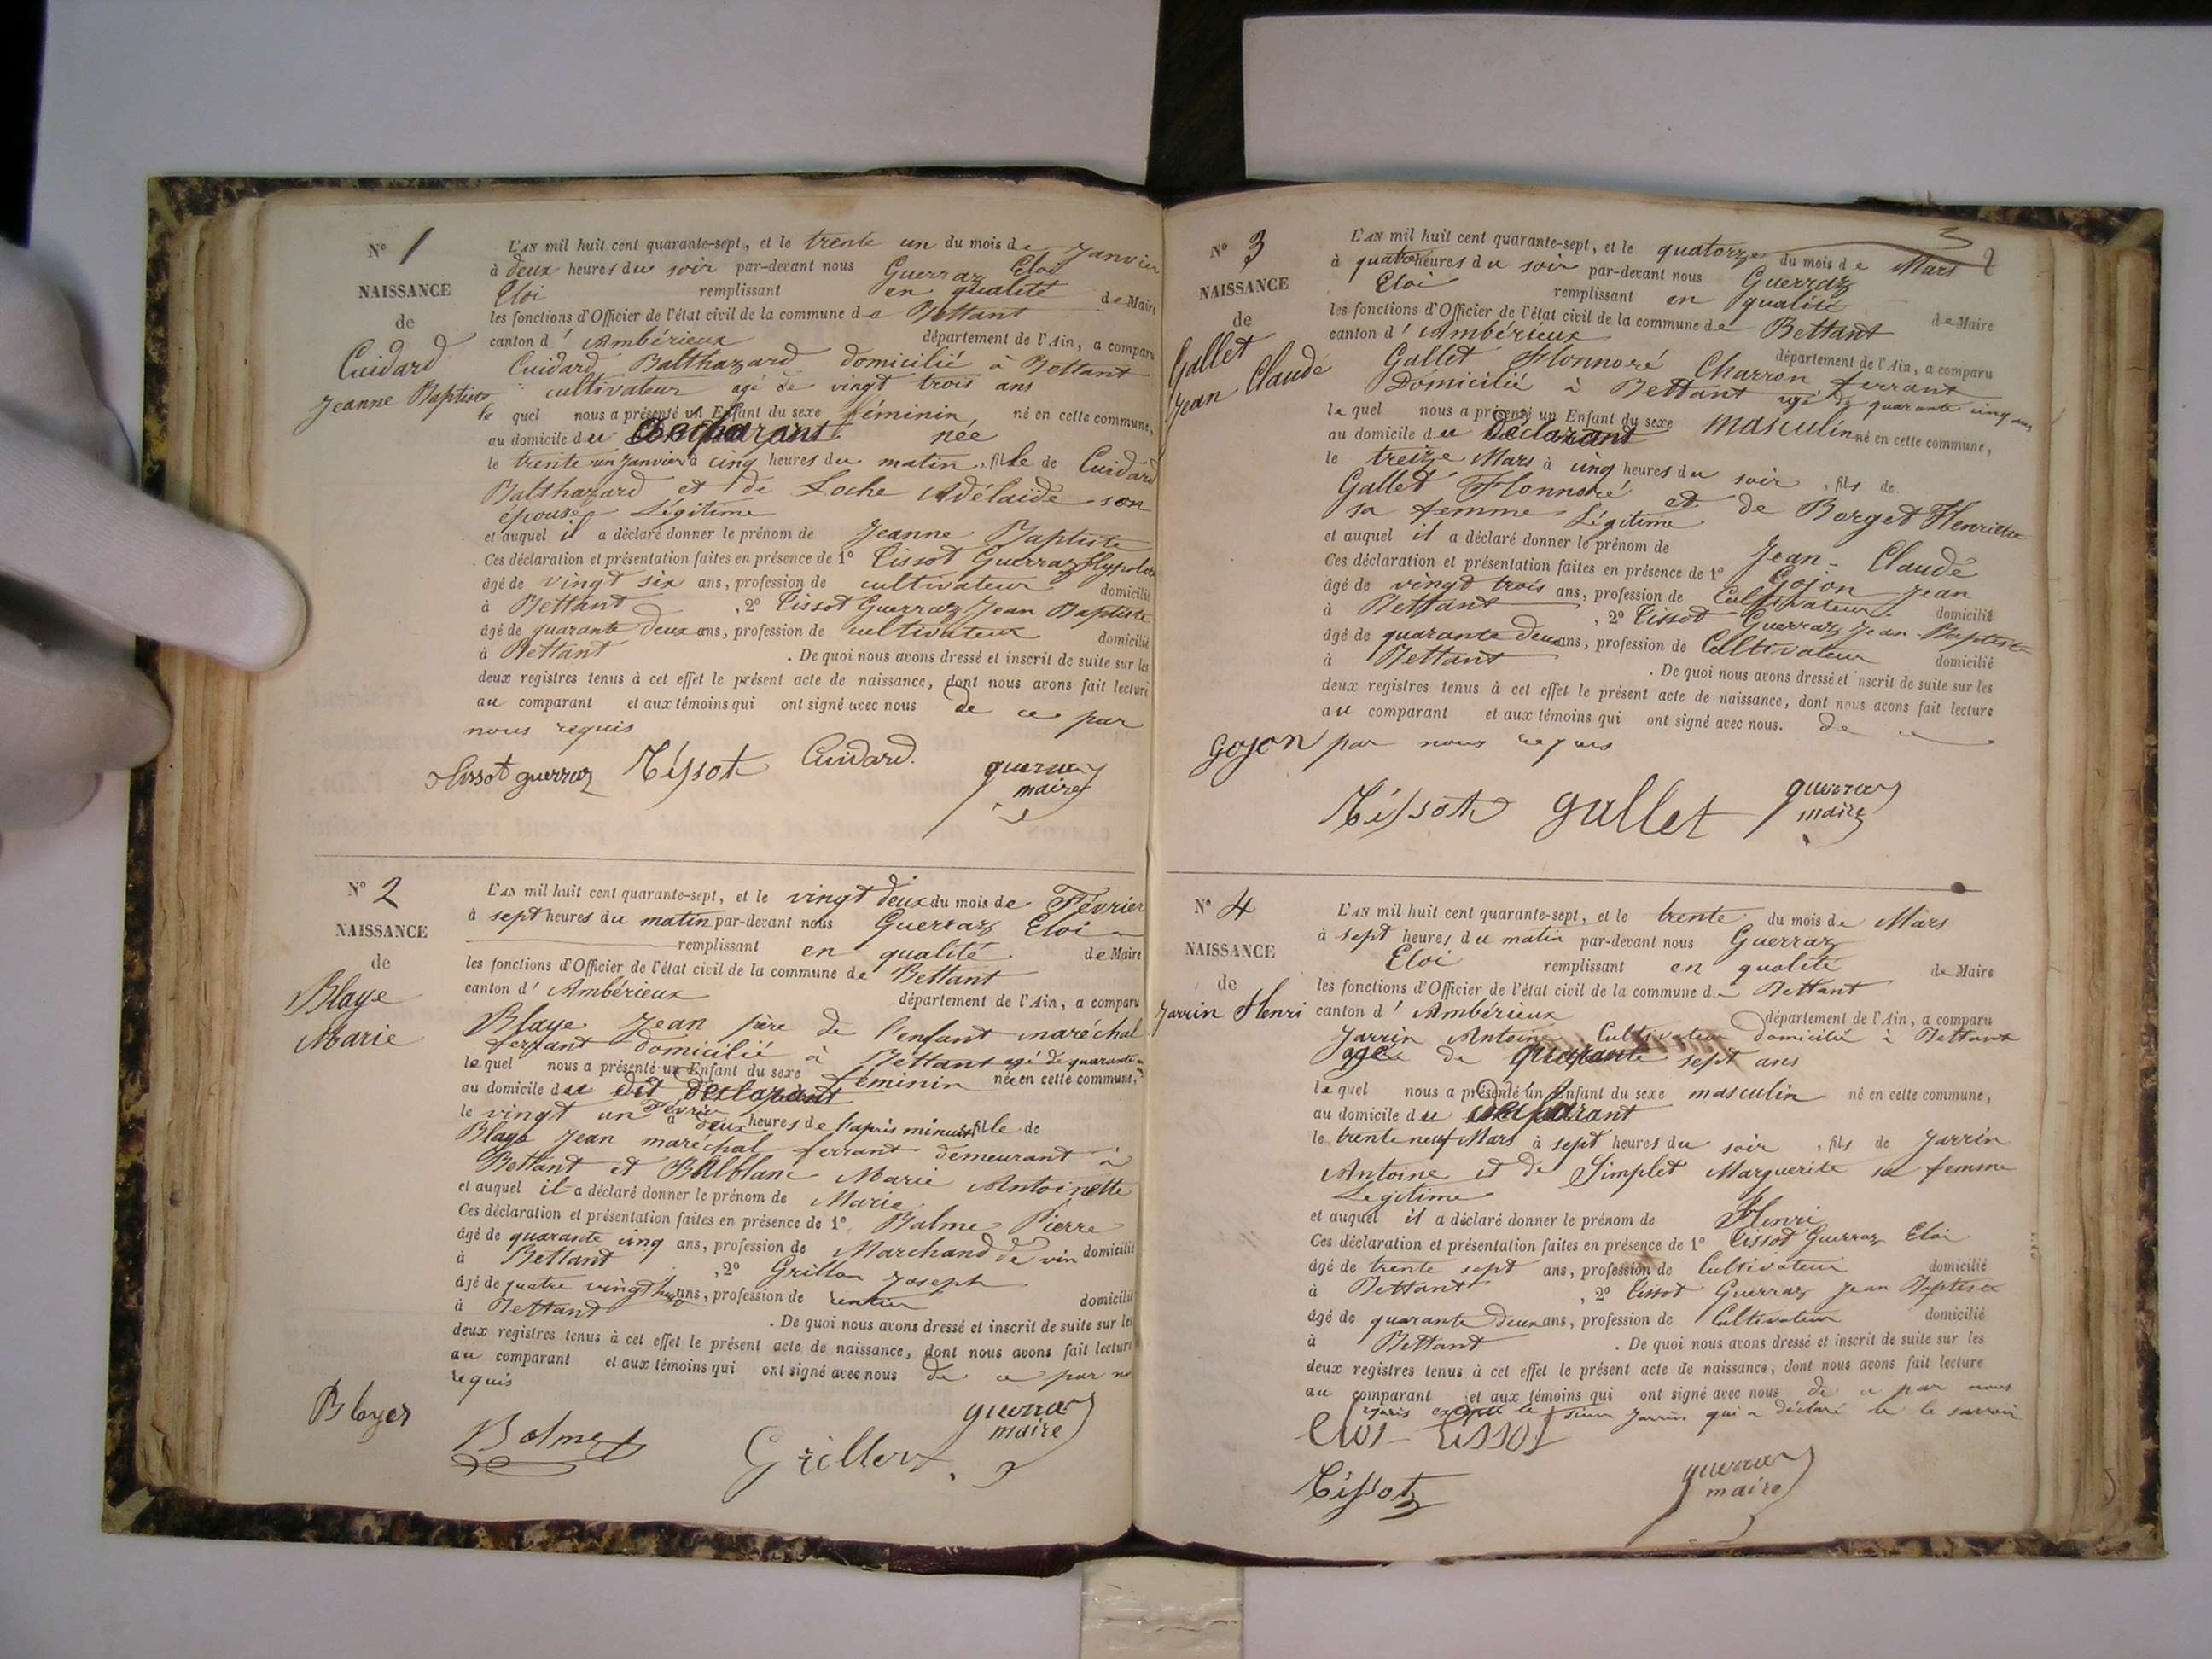 N° 1
NAISSANCE
de
Cuidard
Jeanne Baptiste
L'AN mil huit cent quarante-sept, et le trente un du mois de Janvier
à deux heures du soir par-devant nous Guerraz Eloi
Eloi remplissant en qualité de Maire
les fonctions d'Officier de l'état civil de la commune de Bettant
canton d' Ambérieux département de l'Ain, a comparu
Cuidard Balthazard domicilié à Bettant
cultivateur agé de vingt trois ans
le quel nous a présenté un Enfant du sexe féminin, né en cette commune,
au domicile du née
le trente un Janvier à cinq heures du matin, fille de Cuidard
Balthazard et de Loche Adélaïde son
épouse Légitime
et auquel il a déclaré donner le prénom de Jeanne Baptiste
Ces déclaration et présentation faites en présence de 1° Tissot Guerraz Hypolite
âgé de vingt six ans, profession de cultivateur domicilié
à Bettant, 2° Tissot Guerraz Jean Baptiste
âgé de quarante deux ans, profession de cultivateur domicilié
à Bettant. De quoi nous avons dressé et inscrit de suite sur les
deux registres tenus à cet effet le présent acte de naissance, dont nous avons fait lecture
au comparant et aux témoins qui ont signé avec nous de ce par
nous requis
tissot guerraz Tissot Cuidard.
guerraz
maire
N° 2
NAISSANCE
de
Blaye
Marie
L'AN mil huit cent quarante-sept, et le vingt deux du mois de Février
à sept heures du matin par-devant nous Guerraz Eloi
remplissant en qualité de Maire
les fonctions d'Officier de l'état civil de la commune de Bettant
canton d' Ambérieux département de l'Ain, a comparu
Blaye Jean père de l'enfant maréchal
ferrant domicilié à Bettant agé de quarante
le quel nous a présenté un Enfant du sexe féminin née en cette commune,
au domicile du dit déclarant
le vingt un Février à deux heures de l'après minuit, fille de
Blaye Jean maréchal ferrant demeurant à
Bettant et Balblanc Marie Antoinette
et auquel il a déclaré donner le prénom de Marie
Ces déclaration et présentation faites en présence de 1° Balme Pierre
âgé de quarante cinq ans, profession de Marchand de vin domicilié
à Bettant, 2° Grillon Joseph
âgé de quatre vingt ans, profession de rentier domicilié
à Bettant. De quoi nous avons dressé et inscrit de suite sur les
deux registres tenus à cet effet le présent acte de naissance, dont nous avons fait lecture
au comparant et aux témoins qui ont signé avec nous de ce par
requis
Blayer
Balme
guerraz
maire
N° 3
NAISSANCE
de
Gallet
Jean Claude
3
L'AN mil huit cent quarante-sept, et le quatorze du mois de Mars
à quatre heures du soir par-devant nous Guerraz
Eloi remplissant en qualité de Maire
les fonctions d'Officier de l'état civil de la commune de Bettant
canton d' Ambérieux département de l'Ain, a comparu
Gallet Honnoré Charron ferrant
Domicilié à Bettant agé de quarante cinq ans
le quel nous a présenté un Enfant du sexe masculin né en cette commune,
au domicile du Déclarant
le treize Mars à cinq heures du soir, fils de
Gallet Honnoré et de Borget Henriette
sa femme Légitime
et auquel il a déclaré donner le prénom de Jean-Claude
Ces déclaration et présentation faites en présence de 1° Gojon Jean
âgé de vingt trois ans, profession de Cultivateur domicilié
à Bettant, 2° Tissot Guerraz Jean-Baptiste
âgé de quarante deux ans, profession de Cultivateur domicilié
à Bettant. De quoi nous avons dressé et inscrit de suite sur les
deux registres tenus à cet effet le présent acte de naissance, dont nous avons fait lecture
au comparant et aux témoins qui ont signé avec nous. de ce
par nous requis
Gojon
Tissot gallet
guerraz
maire
N° 4
NAISSANCE
de
Jarrin Henri
L'AN mil huit cent quarante-sept, et le trente du mois de Mars
à sept heures du matin par-devant nous Guerraz
Eloi remplissant en qualité de Maire
les fonctions d'Officier de l'état civil de la commune de Bettant
canton d' Ambérieux département de l'Ain, a comparu
Jarrin Antoine Cultivateur domicilié à Bettant
agé de quarante sept ans
le quel nous a présenté un Enfant du sexe masculin né en cette commune,
au domicile du comparant
le trente neuf Mars à sept heures du soir, fils de Jarrin
Antoine et de Simplet Marguerite sa femme
Légitime
et auquel il a déclaré donner le prénom de Henri
Ces déclaration et présentation faites en présence de 1° Tissot Guerraz Eloi
âgé de trente sept ans, profession de Cultivateur domicilié
à Bettant, 2° Tissot Guerraz Jean Baptiste
âgé de quarante deux ans, profession de Cultivateur domicilié
à Bettant. De quoi nous avons dressé et inscrit de suite sur les
deux registres tenus à cet effet le présent acte de naissance, dont nous avons fait lecture
au comparant et aux témoins qui ont signé avec nous de ce par nous
requis excepté le sieur Jarrin qui a déclaré ne le savoir
Eloi Tissot
Tissot
guerraz
maire